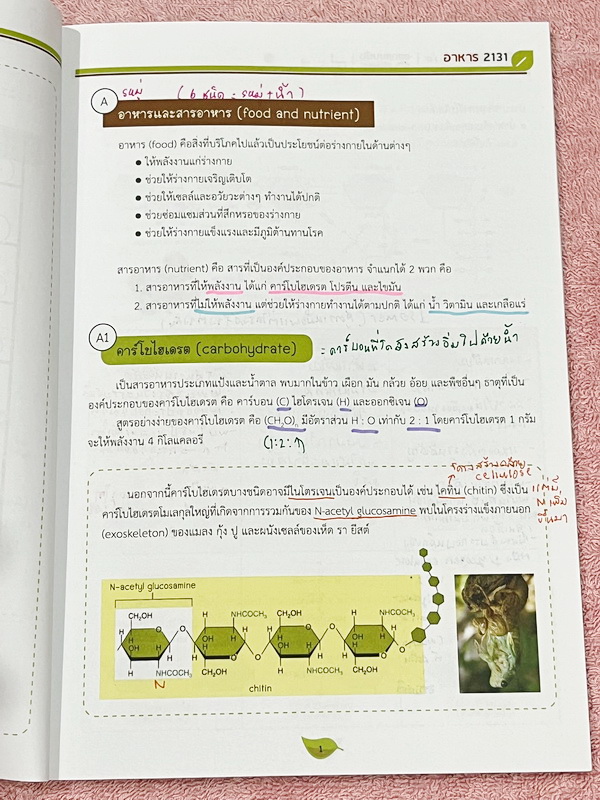 อาหาร 2131
5หมู่ (6 ชนิด = 5หมู่ + น้ำ)
A
อาหารและสารอาหาร (food and nutrient)
อาหาร (food) คือสิ่งที่บริโภคไปแล้วเป็นประโยชน์ต่อร่างกายในด้านต่างๆ
● ให้พลังงานแก่ร่างกาย
● ช่วยให้ร่างกายเจริญเติบโต
● ช่วยให้เซลล์และอวัยวะต่างๆ ทำงานได้ปกติ
● ช่วยซ่อมแซมส่วนที่สึกหรอของร่างกาย
● ช่วยให้ร่างกายแข็งแรงและมีภูมิต้านทานโรค
สารอาหาร (nutrient) คือ สารที่เป็นองค์ประกอบของอาหาร จำแนกได้ 2 พวก คือ
1. สารอาหารที่ให้พลังงาน ได้แก่ คาร์โบไฮเดรต โปรตีน และไขมัน
2. สารอาหารที่ไม่ให้พลังงาน แต่ช่วยให้ร่างกายทำงานได้ตามปกติ ได้แก่ น้ำ วิตามิน และเกลือแร่
A1
คาร์โบไฮเดรต (carbohydrate)
= คาร์บอนที่โครงสร้างอิ่มไปด้วยน้ำ
เป็นสารอาหารประเภทแป้งและน้ำตาล พบมากในข้าว เผือก มัน กล้วย อ้อย และพืชอื่นๆ ธาตุที่เป็น
องค์ประกอบของคาร์โบไฮเดรต คือ คาร์บอน (C) ไฮโดรเจน (H) และออกซิเจน (O)
สูตรอย่างง่ายของคาร์โบไฮเดรต คือ (CH₂O)ₙ มีอัตราส่วน H : O เท่ากับ 2 : 1 โดยคาร์โบไฮเดรต 1 กรัม
จะให้พลังงาน 4 กิโลแคลอรี
(1:2:1)
โครงสร้างคล้าย
cellulose
นอกจากนี้คาร์โบไฮเดรตบางชนิดอาจมีไนโตรเจนเป็นองค์ประกอบได้ เช่น ไคทิน (chitin) ซึ่งเป็น
แต่มี
คาร์โบไฮเดรตโมเลกุลใหญ่ที่เกิดจากการรวมกันของ N-acetyl glucosamine พบในโครงร่างแข็งภายนอก
N เพิ่ม
ขึ้นมา
(exoskeleton) ของแมลง กุ้ง ปู และผนังเซลล์ของเห็ด รา ยีสต์
N-acetyl glucosamine
CH₂OH H NHCOCH₃ CH₂OH H NHCOCH₃
H O H OH H H O H OH H
OH H H O OH H H O
H NHCOCH₃ CH₂OH H NHCOCH₃ CH₂OH
N
chitin
1